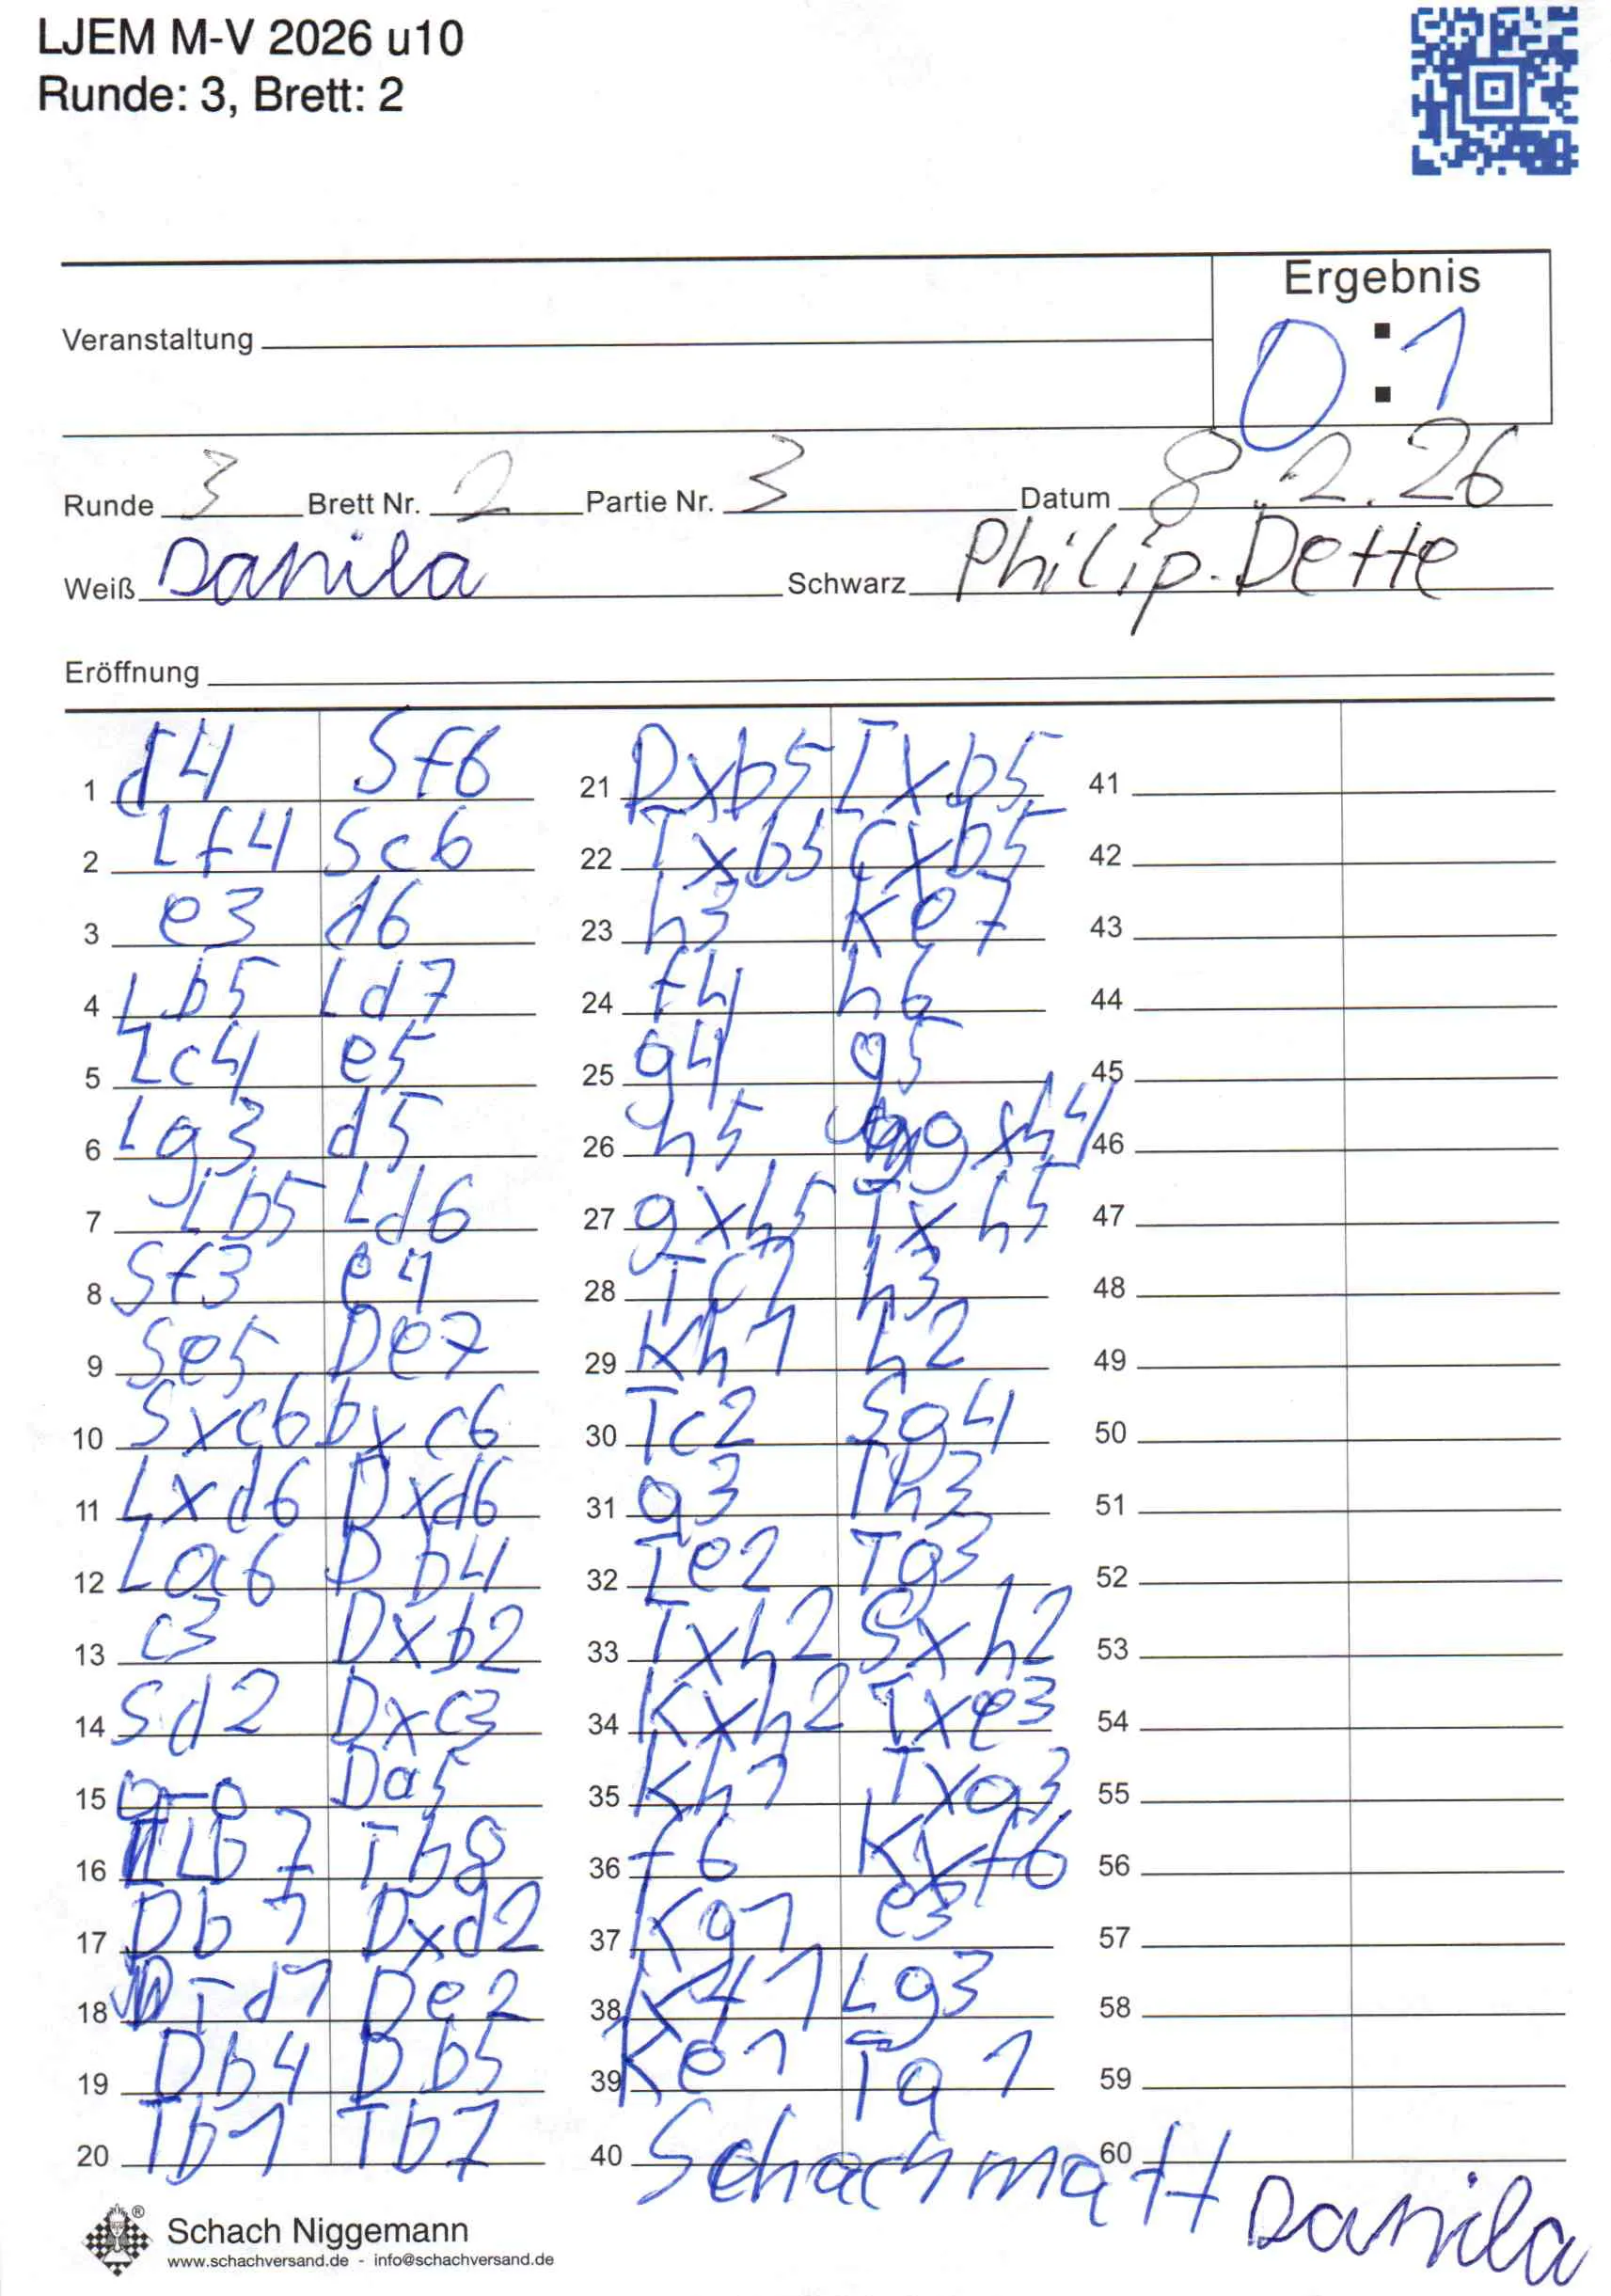 LJEM M-V 2026 u10
Runde: 3, Brett: 2
Ergebnis
Veranstaltung
0:1
Runde 3 Brett Nr. 2 Partie Nr. 3 Datum 8.2.26
Weiß Danila Schwarz Philip. Dette
Eröffnung
1 d4 Sf6 21 Dxb5 Txb5 41
2 Lf4 Sc6 22 Txb5 cxb5 42
3 e3 d6 23 h3 Ke7 43
4 Lb5 Ld7 24 f4 h6 44
5 Lc4 e5 25 g4 g5 45
6 Lg3 d5 26 h5 gxh4 46
7 Lb5 Ld6 27 gxh5 Txh5 47
8 Sf3 e4 28 Tc1 h3 48
9 Se5 De7 29 Kh1 h2 49
10 Sxc6 bxc6 30 Tc2 Sg4 50
11 Lxd6 Dxd6 31 g3 Th3 51
12 La6 Db4 32 Te2 Tg3 52
13 c3 Dxb2 33 Txh2 Sxh2 53
14 Sd2 Dxc3 34 Kxh2 Txe3 54
15 0-0 Da5 35 Kh1 Txg3 55
16 Lb7 Tb8 36 f6 Kxf6 56
17 Db1 Dxd2 37 Kg1 e3 57
18 Td1 De2 38 Kf1 Lg3 58
19 Db4 Db5 39 Ke1 Tg1 59
20 Tb1 Tb7 40 Schachmatt 60
Danila
® Schach Niggemann
www.schachversand.de - info@schachversand.de